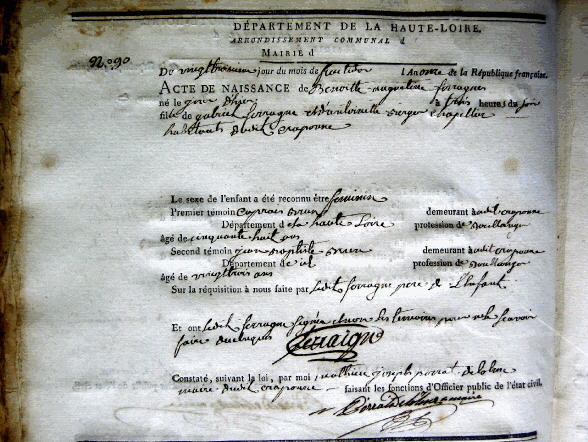 DÉPARTEMENT DE LA HAUTE-LOIRE.
ARRONDISSEMENT COMMUNAL d
MAIRIE d
N.º 90
Du vingt jour du mois de l'An onze de la République française.
ACTE DE NAISSANCE de Benoitte ferragne
né le jour d'hyer à trois heures du soir
fille de gabriel ferragne et d'antoinette chapellon
habitants dudit craponne
Le sexe de l'enfant a été reconnu être feminin
Premier témoin demeurant audit craponne
Département de la haute Loire profession de boullanger
âgé de cinquante huit ans
Second témoin jean baptiste brun demeurant audit craponne
Département d profession de boullanger
âgé de vingt trois ans
Sur la réquisition à nous faite par ledit ferragne pere de L'enfant
Et ont ledit ferragne signé et non les temoins pour ne le scavoir
faire de ce enquis
Constaté, suivant la loi, par moi mathieu joseph porrat de
maire dudit craponne faisant les fonctions d'Officier public de l'état civil.
maire